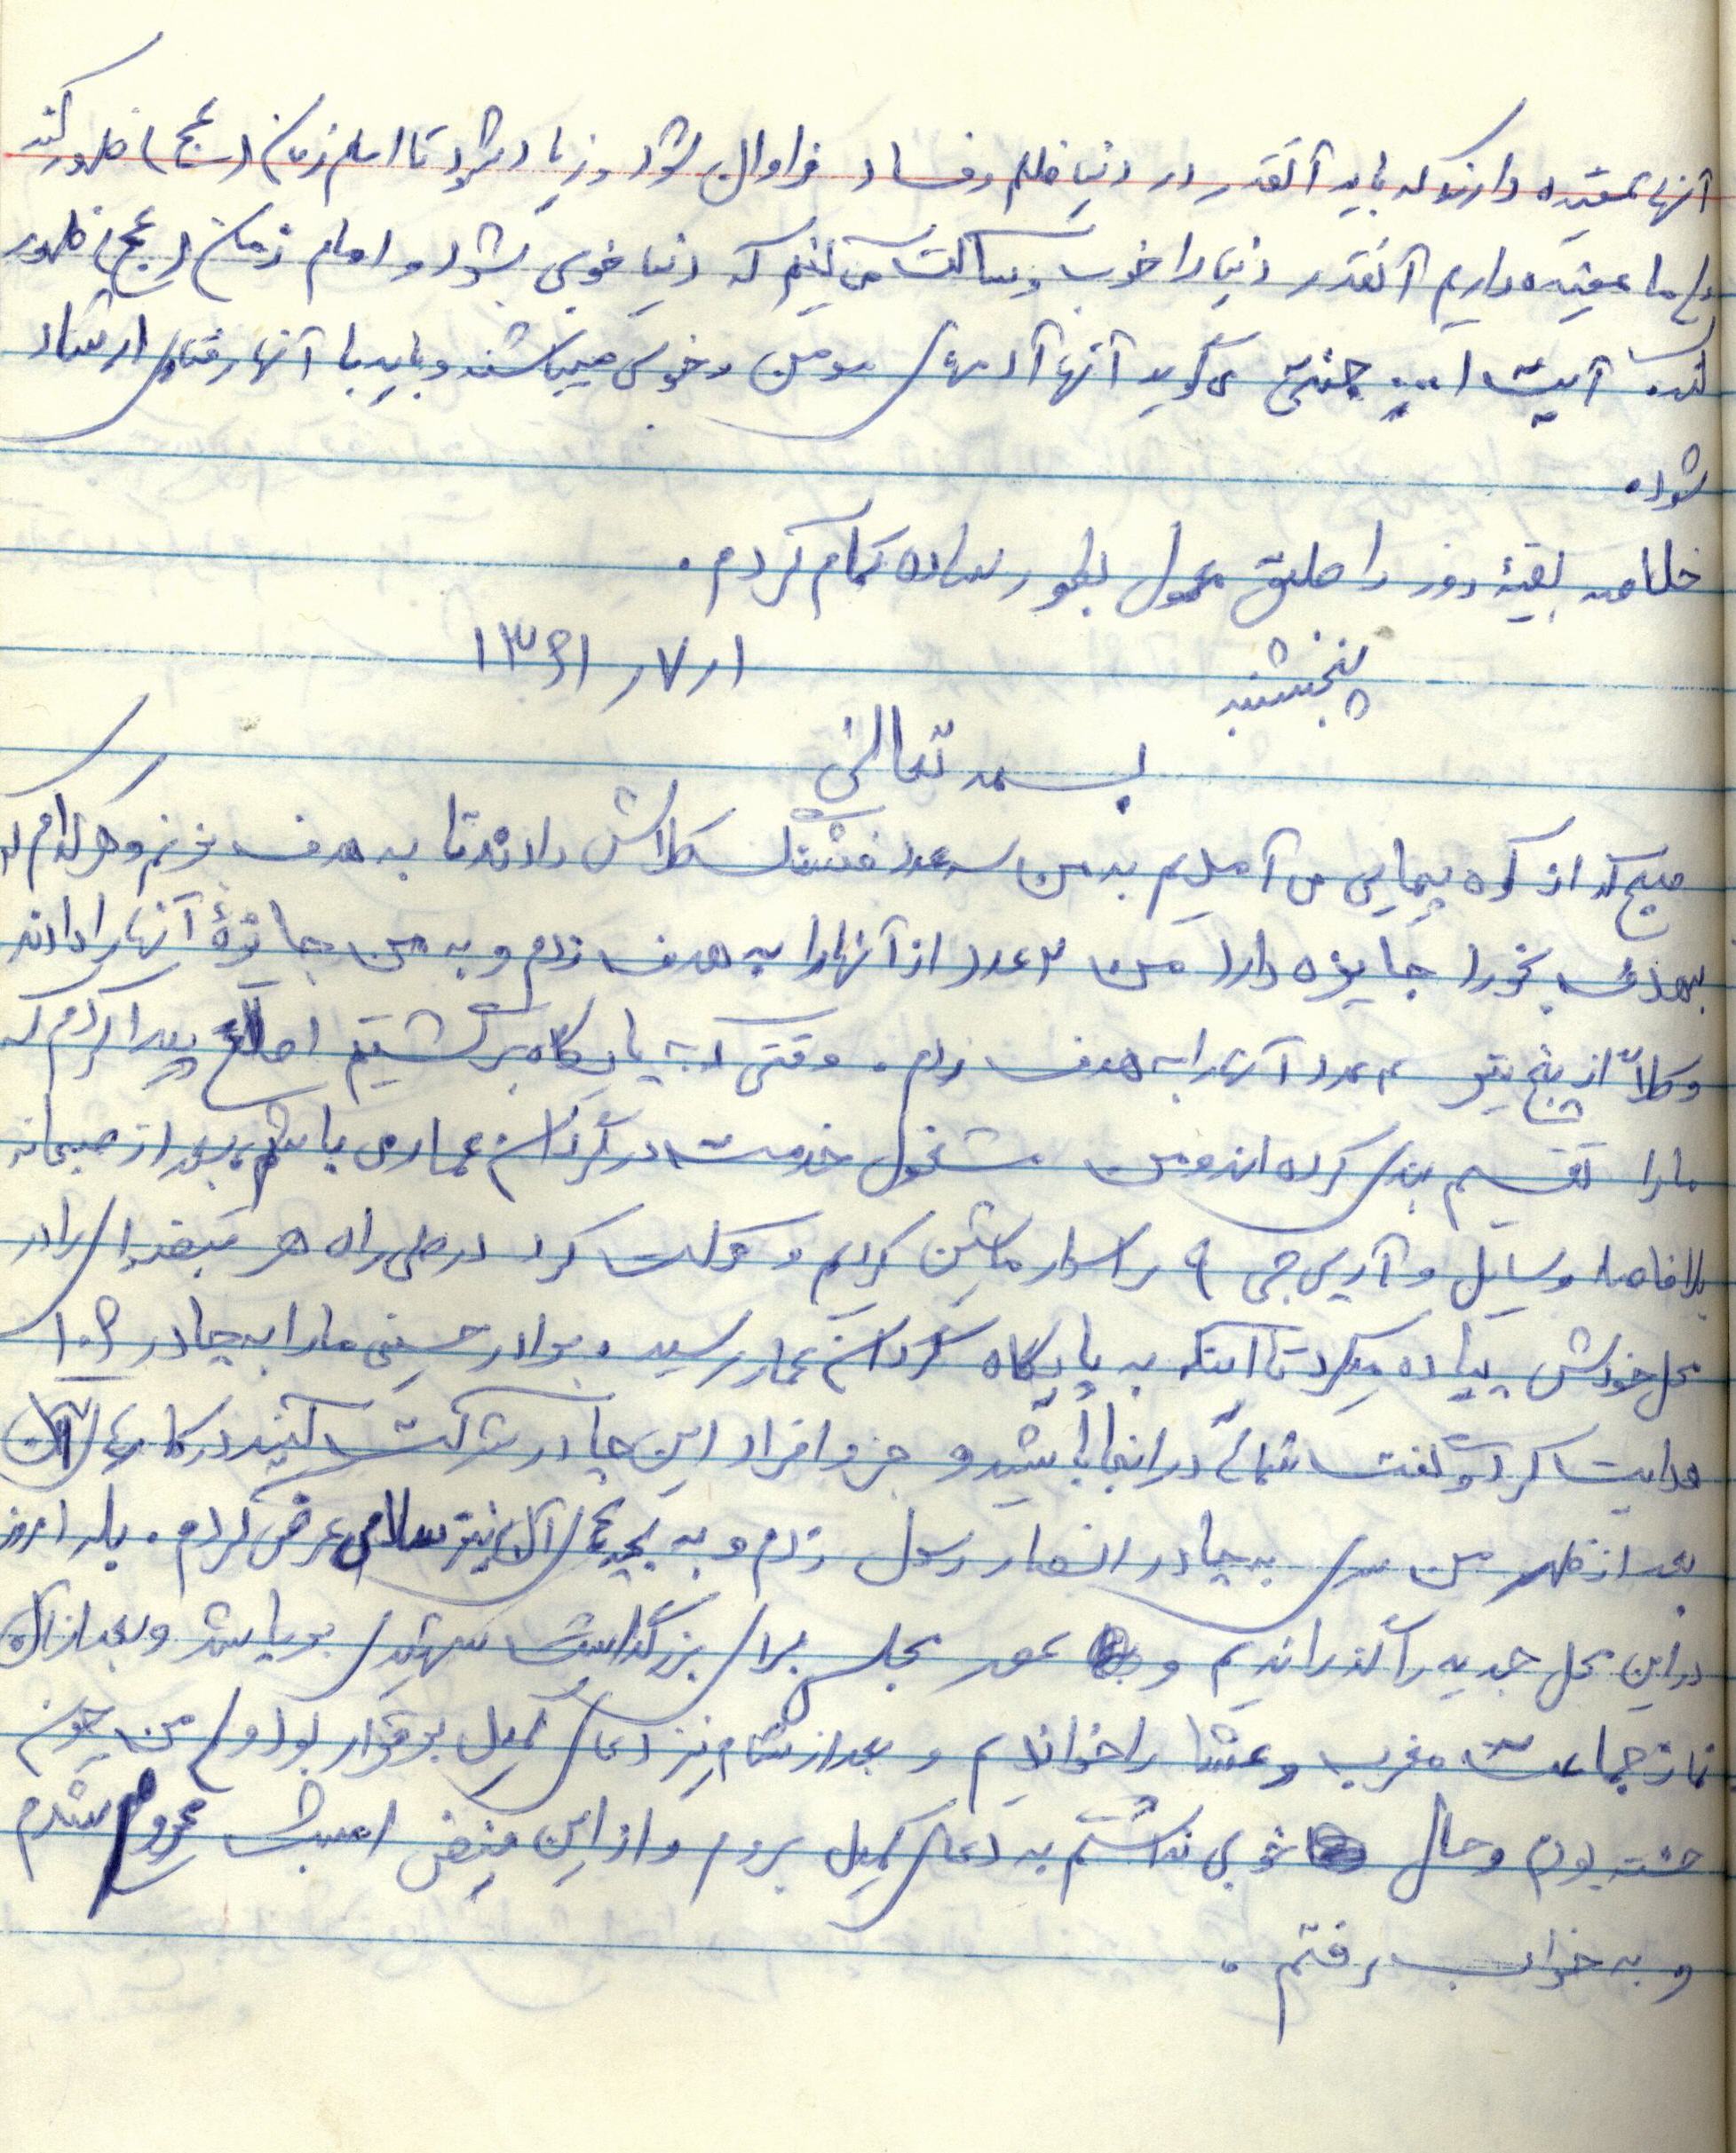 آنها عقیده دارند که باید آنقدر در دنیا ظلم و فساد فراوان شود و زیاد شود تا امام زمان (عج) ظهور کند
ولی ما عقیده داریم آنقدر دنیا را خوب و ساکت می کنیم که دنیا خوبی بشود و امام زمان (عج) ظهور
کند. آیت ا... جنتی می گوید آنها آدمهای مومن و خوبی میباشند و باید با آنها رفتار ارشاد
شود.
خلاصه بقیهٔ روز را طبق معمول بطور ساده تمام کردم.
پنجشنبه ۱ر۷ر۱۳۶۱
بسمه تعالی
صبح که از کوه پیمایی می آمدیم به من سه عدد فشنگ کلاش دادند تا به هدف بزنم و هر کدام که
بهدف بخورد جایزه دارد من ۲ عدد از آنها را به هدف زدم و به من جائزهٔ آنها را دادند
و کلاً از پنج تیر ۴ عدد آنرا به هدف زدم. وقتی که به پایگاه برگشتیم اطلاع پیدا کردم که
ما را تقسیم بندی کرده اند و من مشغول خدمت در گردان عماری باشم، بعد از صبحانه
بلافاصله وسایل و آر پی جی ۹ را سوار ماشین کردیم و حرکت کرد در طی راه هر قبضه ای را در
محل خودش پیاده میکرد تا اینکه به پایگاه گردان عمار رسید. برادر حسینی ما را به چادر ۱۰۶
هدایت کرد و گفت شما در اینجا باشید و جزو افراد این چادر شرکت کنید در کارهای آن
بعد از ظهر من سری به چادر انصار رسول زدم و به بچه های آن نیز سلامی عرض کردم. بله امروز
در این محل جدید را گذراندیم و عصر مجلس برای بزرگداشت شهدا برپا شد و بعد از آن
نماز جماعت مغرب و عشا را خواندیم و بعد از شام نیز دعای کمیل برقرار بود ولی من چون
خسته بودم و حال خوبی نداشتم به دعای کمیل بروم و از این فیض امشب محروم شدم
و به خواب رفتم.